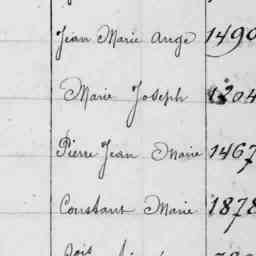 Jean Marie Ange 1490
Marie Joseph 1204
Pierre Jean Marie 1467
Constant Marie 1878